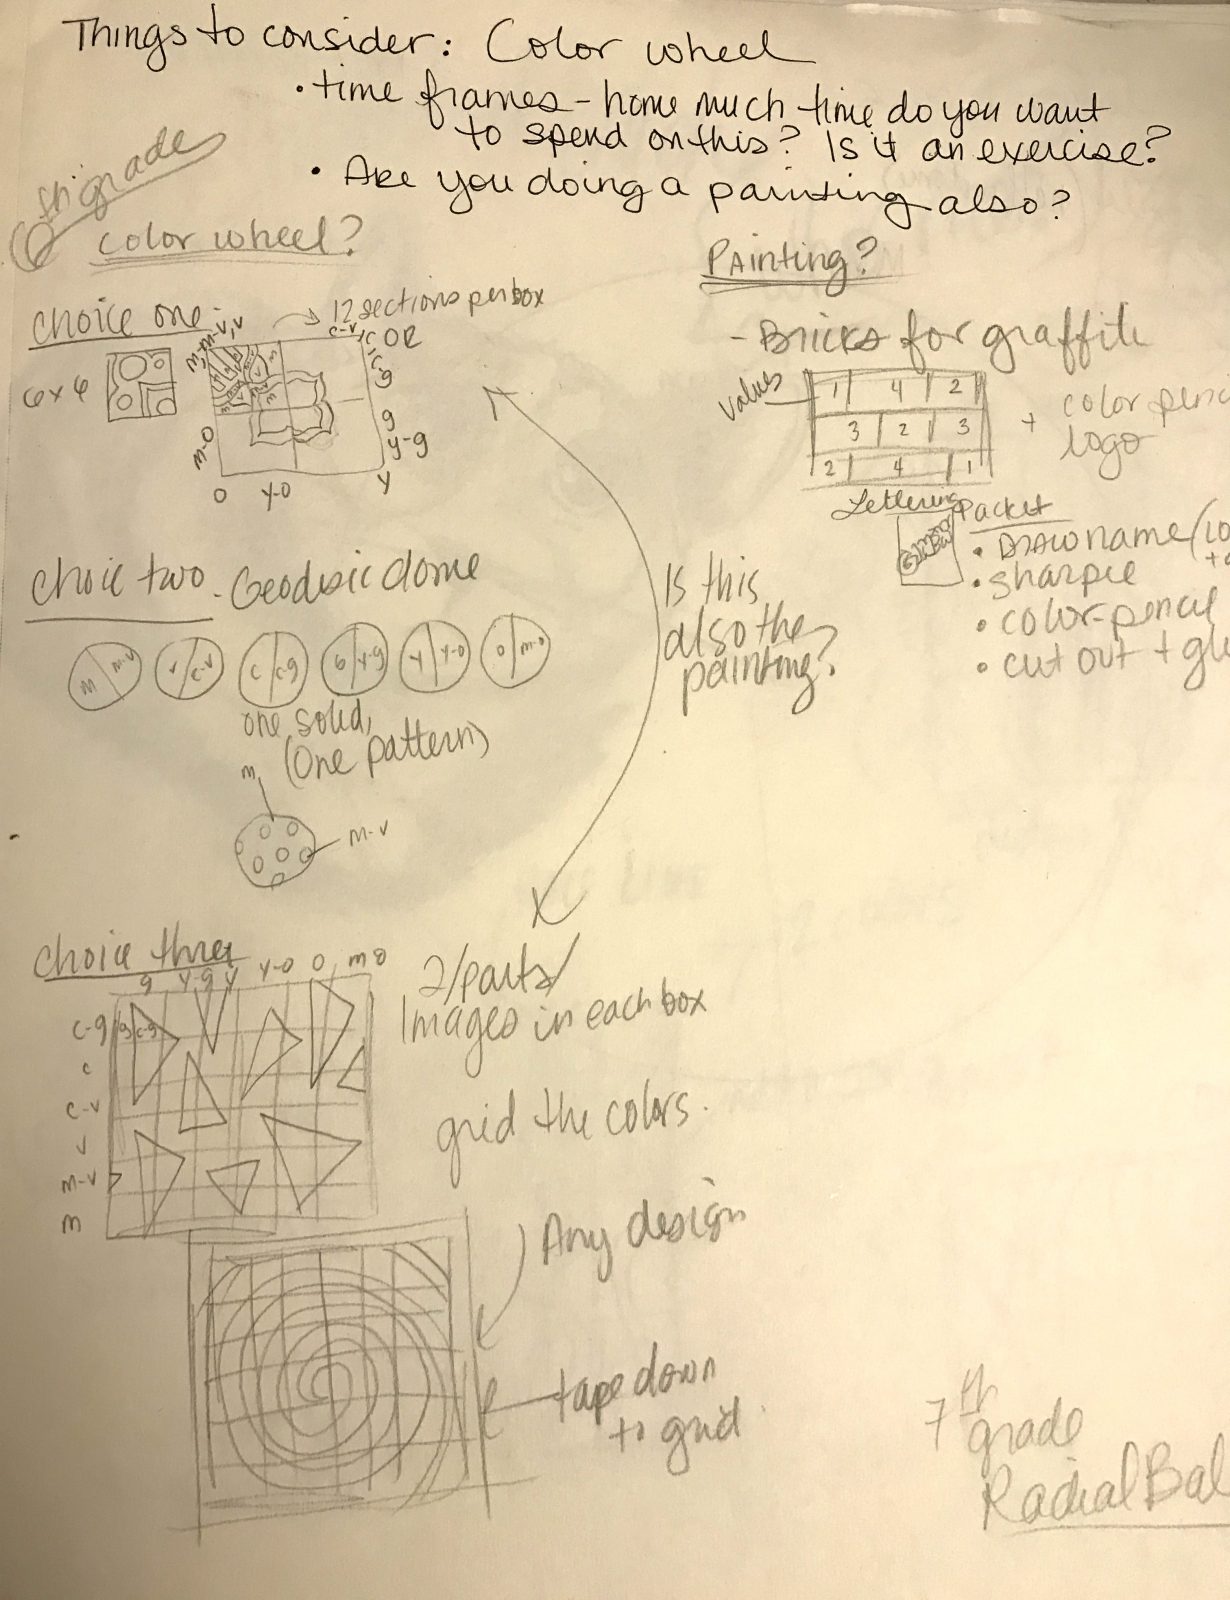 Things to consider: Color wheel
• time frames - home much time do you want
to spend on this? Is it an exercise?
• Are you doing a painting also?
6th grade
color wheel?
choice one -
12 sections per box
6x6
m, m-v, v
c-v
c OR
c-g
g
y-g
y
y-o
o
m-o
choic two. Geodesic dome
m m-v
v c-v
c c-g
6 y-g
y y-o
o m-o
one solid,
(One pattern)
m
m-v
choice three
g y-g y y-o o m o
c-g g c-g
c
c-v
v
m-v
m
2/parts/
Images in each box
grid the colors.
Any design
tape down
to grid
Is this
also the
painting?
Painting?
- Bricks for graffiti
values
1 4 2
3 2 3
2 4 1
+ color penci
logo
Lettering Packet
• Draw name (
• sharpie
• color-pencil
• cut out + glu
7th
grade
Radial Bal